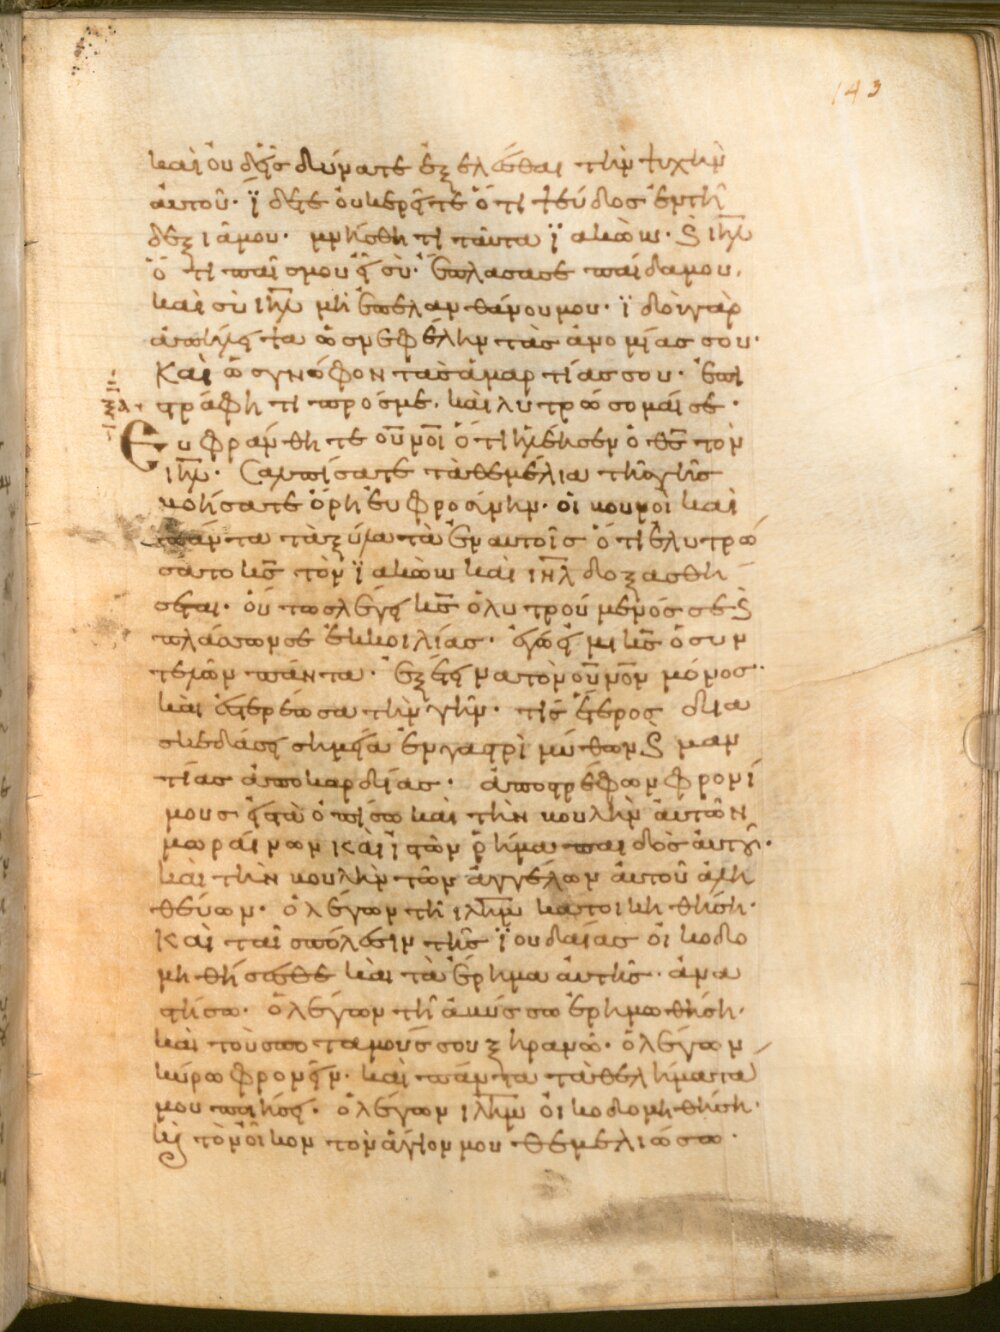 143
καὶ οὐδεὶς δύνατε ἐξελέσθαι τὴν ψυχὴν
ἀυτοῦ· ἴδετε ὀυκερεῖτε ὅτι ψεύδος ἐν τῆ
δεξιᾶ μου· μνήσθητι ταῦτα ϊακὼω· ϗ ιη̅λ
ὅτι παῖς μου εἶ σὺ· ἔπλασασε παίδα μου,
και σὺ ιη̅λ μὴ ἐπελανθάνου μου· ϊδοὺ γὰρ
ἀπήλειψα ὡς νεφέλην τὰς ἀνομίας σου·
Καὶ ὡς γνόφον τὰς ἁμαρτίας σου· ἐπι
στράφητι προσμε, καὶ λυτρώσομαί σε·
Ευφράνθητε οὐ̅νο̅ὶ ὅτι ἠλέησεν ὁ θ̅ς τὸν
ιη̅λ· Σαλπίσατε τὰ θεμέλια τῆς γῆς
βοήσατε ὄρη ἐυφροσύνην· οἱ βουνοὶ καὶ
πάντα τὰ ξύλα τὰ ἐν αυτοῖς ὅτι ἐλυτρώ
σατο κ̅ς τὸν ϊακὼω καὶ ιη̅λ δοξασθή
σεται· ὅυτως λέγει κ̅ς ὁ λυτρούμενός σε ϗ
πλάσσων σε ἐκ κοιλίας· ἐγώ εἰμι κ̅ς ὁ συν
τελῶν πάντα· ἐξέτεινα τὸν οὐ̅νο̅ν μόνος·
καὶ ἐστερέωσα τὴν γῆν· τίς ἕτερος δια
σκεδάσει σημεῖα ἐνγαστριμύθων ϗ μαν
τίας ἀπο καρδίας· ἀποστρέφων φρονί
μους εἰς τὰ ὀπίσω καὶ τὴν βουλὴν ἀυτῶν
μωραίνων καὶ ἱστῶν ῥῆμα παιδὸς ἀυτοῦ·
καὶ τὴν βουλὴν τῶν ἀγγέλων ἀυτοῦ ἀλη
θεύων· ὁ λέγων τῆ ιλη̅μ κατοικηθήση·
Καὶ ταῖς πόλεσιν τῆς ϊουδαίας οἰκοδο
μηθήσεσθε καὶ τὰ ἔρημα ἀυτῆς· ἀνα
στήσω· ὁ λέγων τῆ ἀβύσσω ἐρημωθήση·
καὶ τοὺς ποταμούς σου ξηρανῶ· ὁ λέγων
κύρω φρονεῖν· καὶ πάντα τὰ θελήματα
μου ποιήσει· ὁ λέγων ιλη̅μ οἰκοδομηθήση·
κ̀ τὸν οἶκον τὸν ἅγιον μου θεμελιώσω·